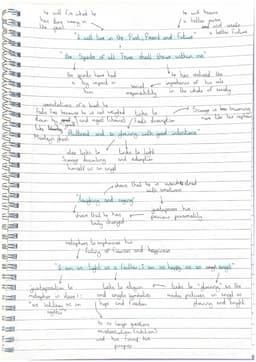 he will fix what he
has done wrong in
the past
he will become
a better person
and will create
a better future
"I will live in the Past, Present and Future"
"the Spirits of all Three shall strive within me"
the spirits have had
a big impact on
him
he has realised the
importance of his role
in the whole of society
social
responsibility
connotations of a boat, he
feels free because he is not weighed
down by
Marley's ghost
links to
Fred's description
Scrooge is now becoming
more like his nephew
"fluttered and so glowing with good intentions"
also links to
Scrooge describing
himself as an angel
links to light
and redemption
shows that he is
with emotions
"laughing and crying"
shows that he has
truly changed
juxtaposes his
previous personality
metaphors to emphasise his
feeling of freeness and happiness
"I am as light as a feather, I am as happy as an angel"
juxtaposition to
metaphor in stave 1:
"as solitary as an
oyster"
links to religion
and angels symbolise
hope and freedom
links to "glowing" as the
media pictures an angel as
glowing and bright
he no longer questions
and has found his
purpose